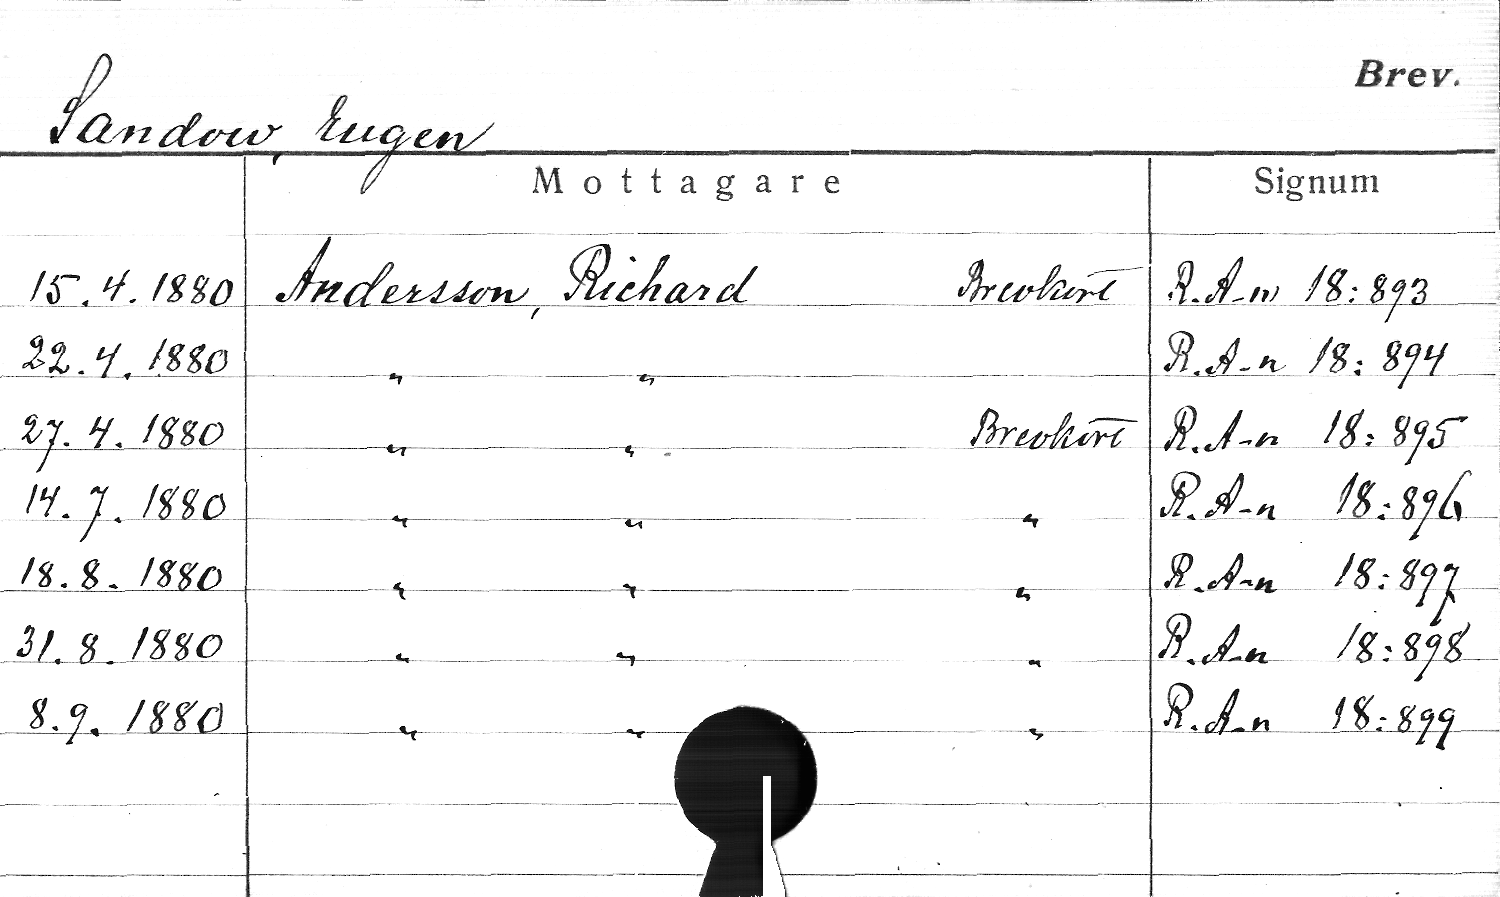 Brev.
Sandow, Eugen
Mottagare Signum
15.4.1880 Andersson, Richard Brevkort R.A-n 18:893
22.4.1880 " " R.A-n 18:894
27.4.1880 " " Brevkort R.A-n 18:895
14.7.1880 " " " R.A-n 18:896
18.8.1880 " " " R.A-n 18:897
31.8.1880 " " " R.A-n 18:898
8.9.1880 " " " R.A-n 18:899